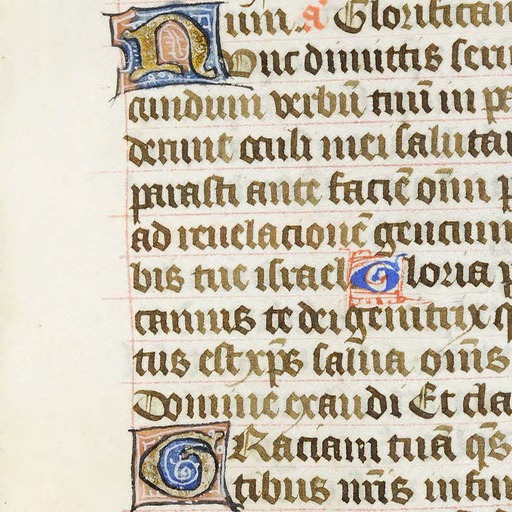 uim. a Glorifican
Nunc dimittis seru
cundum verbū tuū in pa
derunt oculi mei saluta
parasti ante faciē oīm p
ad reuelacionē gencium
bis tue israel Gloria p
camus te dei genitrix q
tus est xp̄s salua om̄s
Domine exaudi Et cla
Graciam tuā q̄s
tibus nr̄is infun